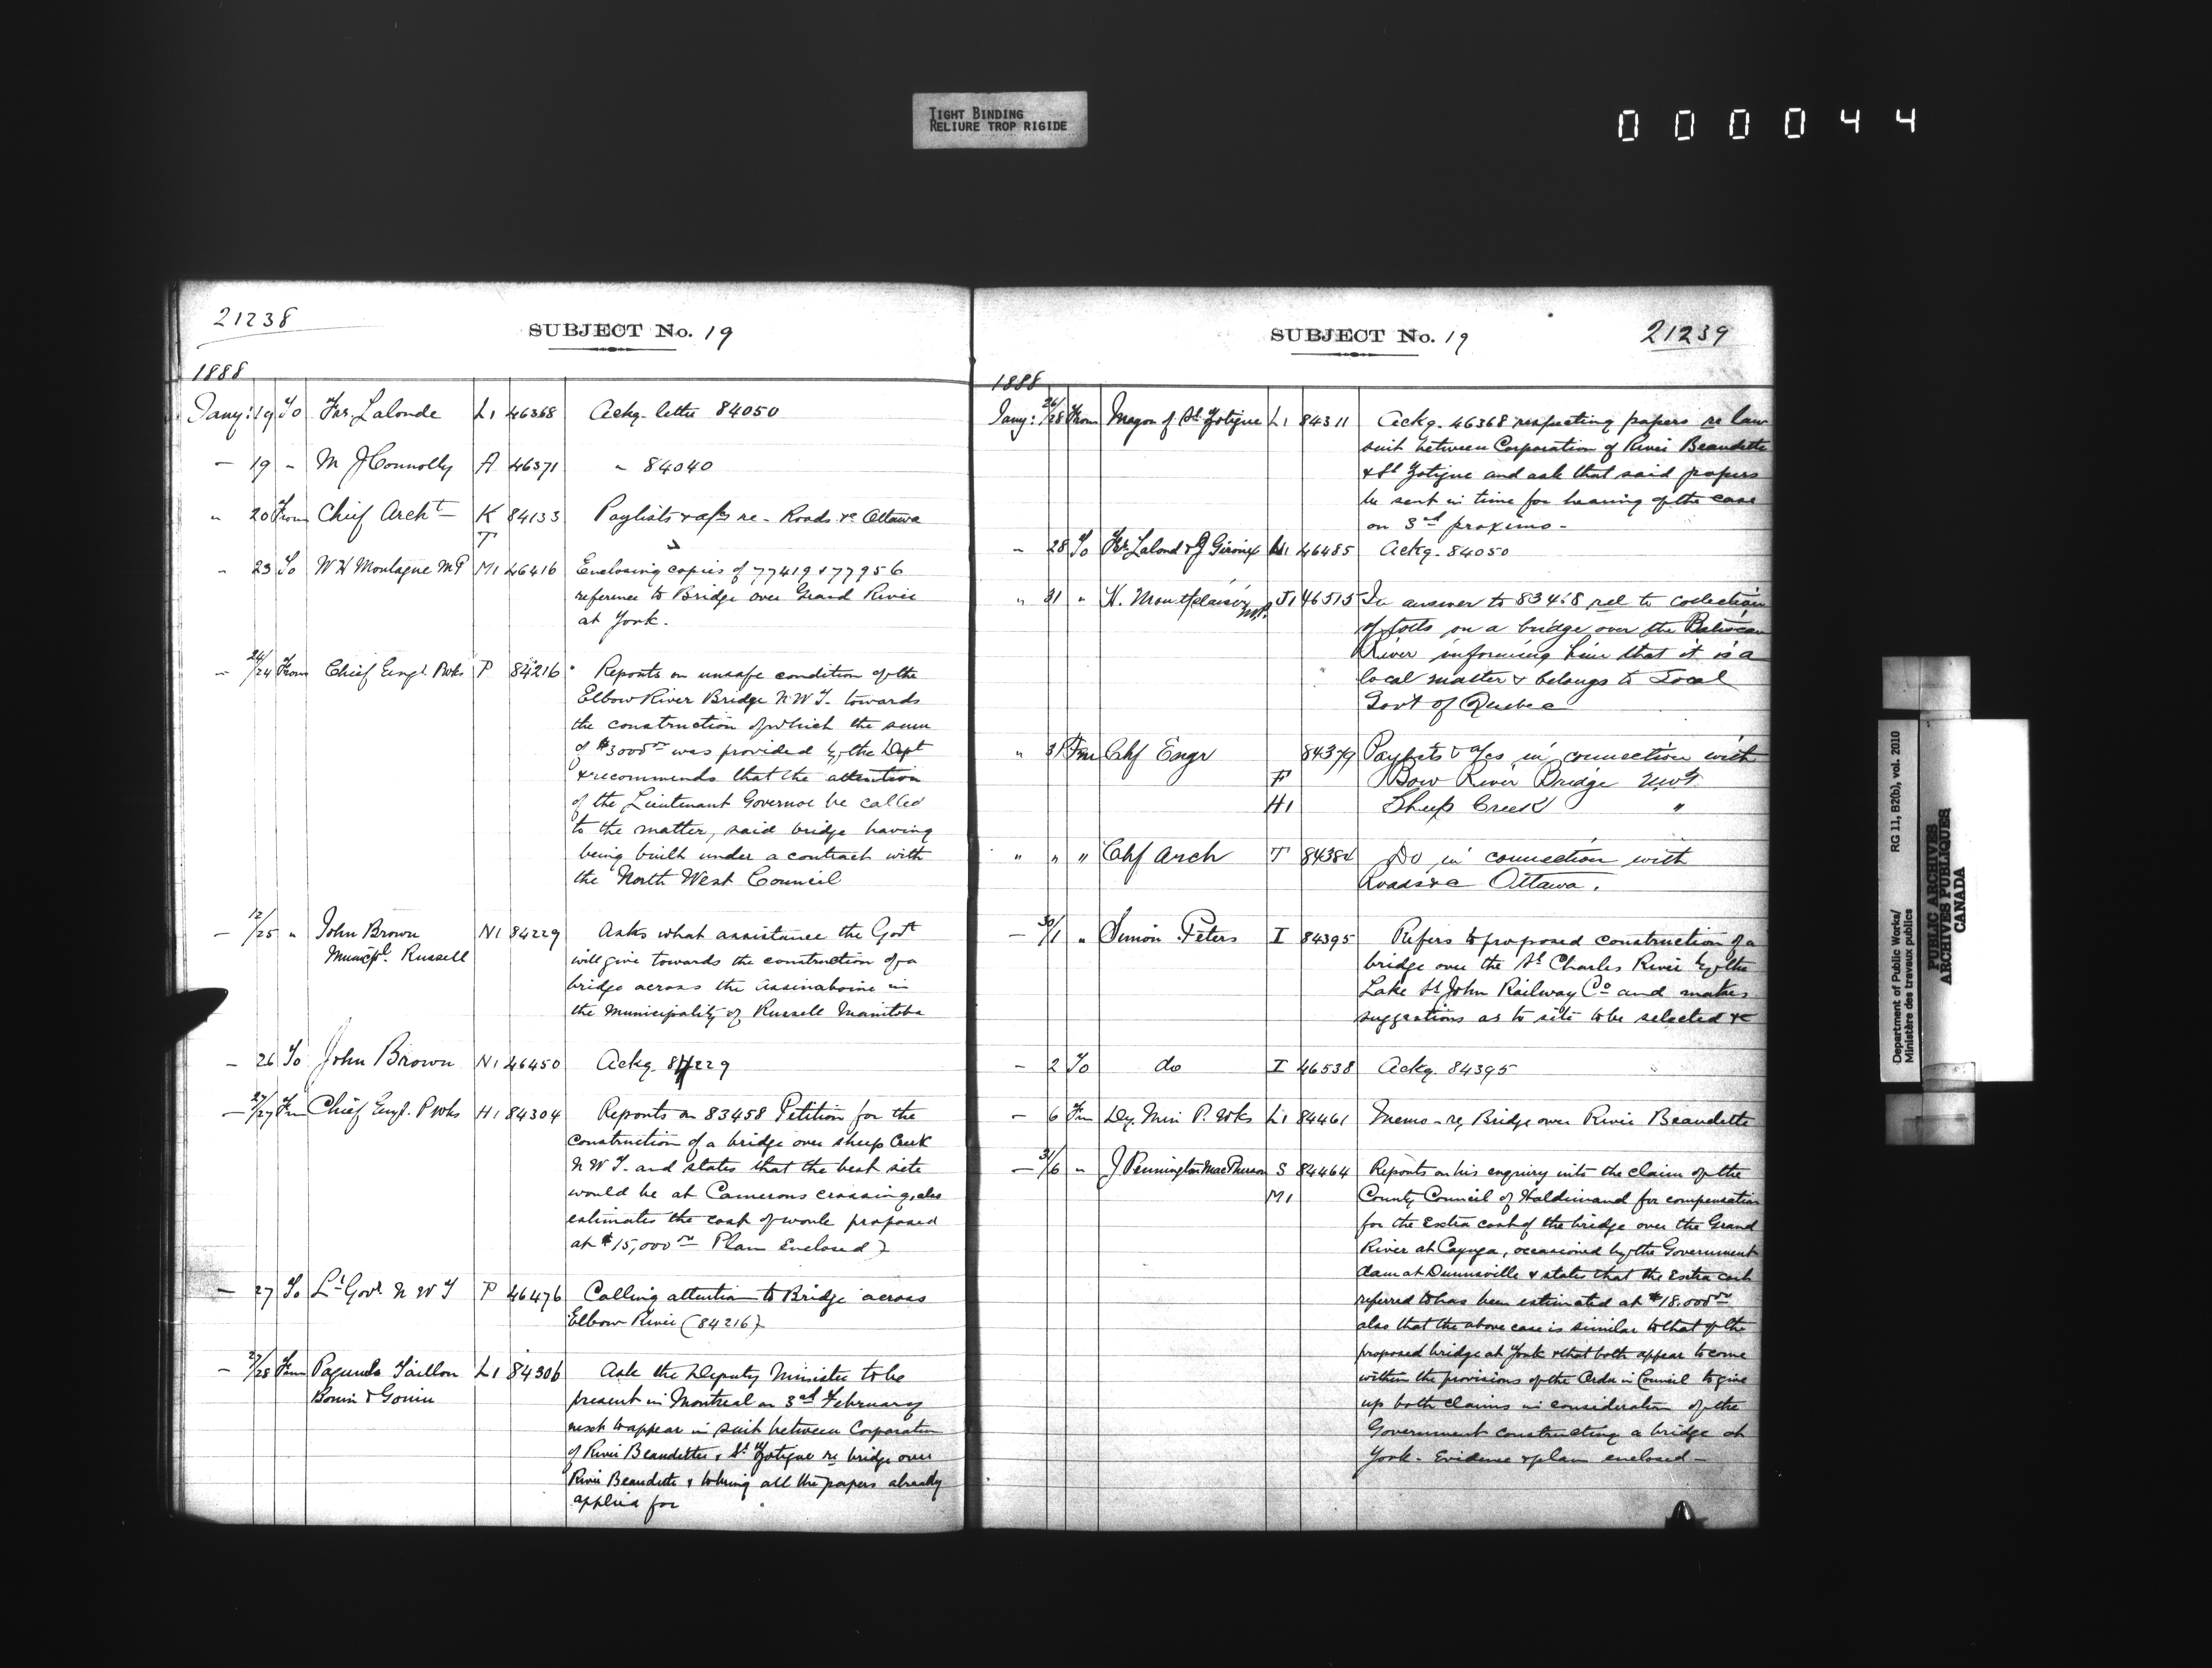 TIGHT BINDING
RELIURE TROP RIGIDE
000044
21238
SUBJECT No. 19
1888
Jany: 19 To Fer. Lalonde L1 46368 Ackg. letter 84050
— 19 " M J Connolly A 46371 " 84040
" 20 From Chief Archt K 84133 Paylists & a/cs re - Roads &c Ottawa
T
" 23 To W H Montague MP M1 46416 Enclosing copies of 77419 & 77956
reference to Bridge over Grand River
at York.
— 24/24 From Chief Engr. Pwks P 84216 Reports on unsafe condition of the
Elbow River Bridge N W T. towards
the construction of which the sum
of $3000.00 was provided by the Dept
& recommends that the attention
of the Lieutenant Governor be called
to the matter, said bridge having
being built under a contract with
the North West Council
— 12/25 " John Brown N1 84229 Asks what assistance the Govt
Municipl. Russell will give towards the construction of a
bridge across the Assinaboine in
the Municipality of Russell Manitoba
— 26 To John Brown N1 46450 Ackg. 84229
— 27/27 Fm Chief Engr. P Wks H1 84304 Reports on 83458 Petition for the
construction of a bridge over sheep Creek
N W T. and states that the best site
would be at Camerons crossing, also
estimates the cost of work proposed
at $15,000.00 Plan Enclosed }
— 27 To Lt Govr. N W T P 46476 Calling attention to Bridge across
Elbow River (84216)
— 27/28 From Pagnuelo Taillon L1 84306 Ask the Deputy Minister to be
Bonin & Gouin present in Montreal on 3rd February
next to appear in suit between Corporation
of River Beaudette & St Zotique re bridge over
River Beaudette & to bring all the papers already
applied for
SUBJECT No. 19
21239
1888
Jany: 26/28 From Mayor of St Zotique L1 84311 Ackg. 46368 respecting papers re law
suit between Corporation of River Beaudette
& St Zotique and ask that said papers
be sent in time for hearing of the case
on 3rd proximo -
" 28 To Fer. Lalond & J Giroux L1 46485 Ackg. 84050
" 31 " H. Montplaisir MP. J1 46515 In answer to 83418 rel to collection
of tolls on a bridge over the Batiscan
River informing him that it is a
local matter & belongs to Local
Govt of Quebec
" 31 Fm Chf Engr 84379 Paylists & a/cs in connection with
F Bow River Bridge N.W.T.
H1 Sheep Creek "
" " " Chf Arch T 84384 Do in connection with
Roads &c Ottawa.
— 30/1 " Simon Peters I 84395 Refers to proposed construction of a
bridge over the St Charles River by the
Lake St John Railway Co and makes
suggestions as to site to be selected &c
— 2 To do I 46538 Ackg. 84395
— 6 Fm Dy. Min P. Wks L1 84461 Memo - re Bridge over River Beaudette
— 31/6 " J Pennington MacPherson S 84464 Reports on his enquiry into the claim of the
M1 County Council of Haldimand for compensation
for the Extra cost of the bridge over the Grand
River at Cayuga, occasioned by the Government
dam at Dunnville & states that the Extra cost
referred to has been estimated at $18.000.00
also that the above case is similar to that of the
proposed bridge at York & that both appear to come
within the provisions of the Order in Council to give
up both claims in consideration of the
Government constructing a bridge at
York - Evidence & plan enclosed —
Department of Public Works/ RG 11, B2(b), vol. 2010
Ministère des travaux publics
PUBLIC ARCHIVES
ARCHIVES PUBLIQUES
CANADA